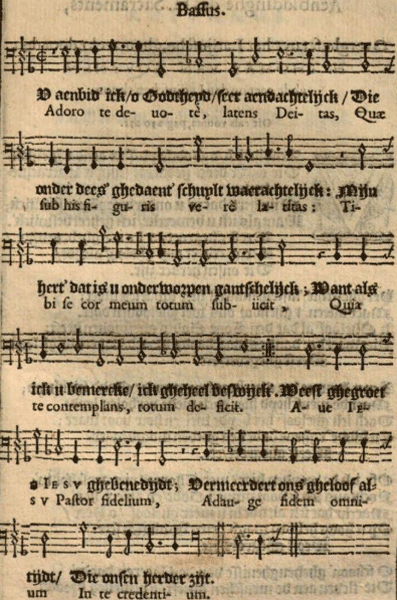 Bassus.
U aenbid' ick/ o Godtheyd/ seer aendachtelijck/ Die
Adoro te de- uo- te, latens Dei- tas, Quæ
onder dees ghedaent' schuylt waerachtelijck: Mijn
sub his fi- gu- ris ve- rè la- titas: Ti-
hert dat is u onderworpen gantschelijck; Want als
bi se cor meum totum sub- iicit, Quia
ick u bemercke/ ick gheheel beswijck. Weest ghegroet
te contemplans, totum de- ficit. A- ue Ie-
o IESV ghebenedijdt; Vermeerdert ons gheloof al-
s v Pastor fidelium, Adau- ge fidem omni-
tijdt/ Die onsen herder zijt.
um In te credenti- um.